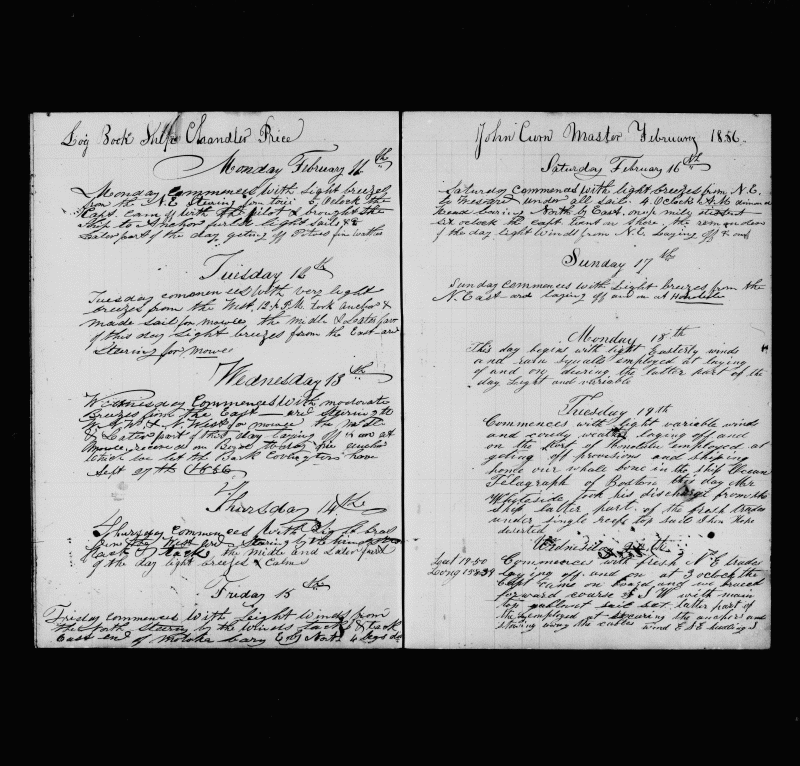 Log Book Ship Chandler Price
Monday February 11th
Monday Commences With Light breezes
from the N.E Steering for 5 Oclock the
Capt. Cam off with the Pilot & brought the
ship to Anchor furled light sails &c
Later part of the day geting off
Tuesday 12th
Tuesday commences With very light
breezes from the West. 12 P.M Took anchor &
made sail for mowee the midle & Later part
of this day Light breezes from the East and
Steering for Mowee
Wednesday 13th
Wednesday Commences With moderate
Breezes from the East and Steering to
W. N. West for mowee the midle
& Later part of this day Laying off & on at
Mowee, received on Board
which we let the Bark Covington have
Sept 27th 1856
Thursday 14th
Thursday Commences With Light breezes
from the West and Stearing by the Wind
Tack & Tack, the midle and Later part
of the day light breezes & Calm
Friday 15th
Friday commences With Light Winds from
the North Stearing by the Winds tack & tack
East end of bearing
John Curn Master February 1856.
Saturday February 16th
Saturday Commences with light breezes from N.E.
to Westward under all sail. 4. Oclock A.M
head baring North by East. one mile distant
six oclock the Capt. went on shore, the remainder
of the day light winds from N.E. laying off & on
Sunday 17th
Sunday commences with light breezes from the
N. East and laging off and on at Honolulu
Monday 18th
This day begins with light Easterly winds
and rain squalls employed at laying
of and on, duering the latter part of the
day light and variable
Tuesday 19th
Commences with light variable winds
and laying off and
on the Port of Honolulu employed at
geting off provisions and shiping
home our whale bone in the ship Ocean
Telagraph of Boston this day Mr
Whyteside took his discharge from the
ship latter part. of the fresh trades
under single reefe top sail
deserted
Wednesday 20th
Laut 19-50
Long 158-39
Commences with fresh N E trades
laying off and on at 3 oclock the
Capt came on board and we braced
forward course S. W with main
top gallent sail set latter part of
the employed at securing the anchors and
stowing away the cables wind E S E heading S